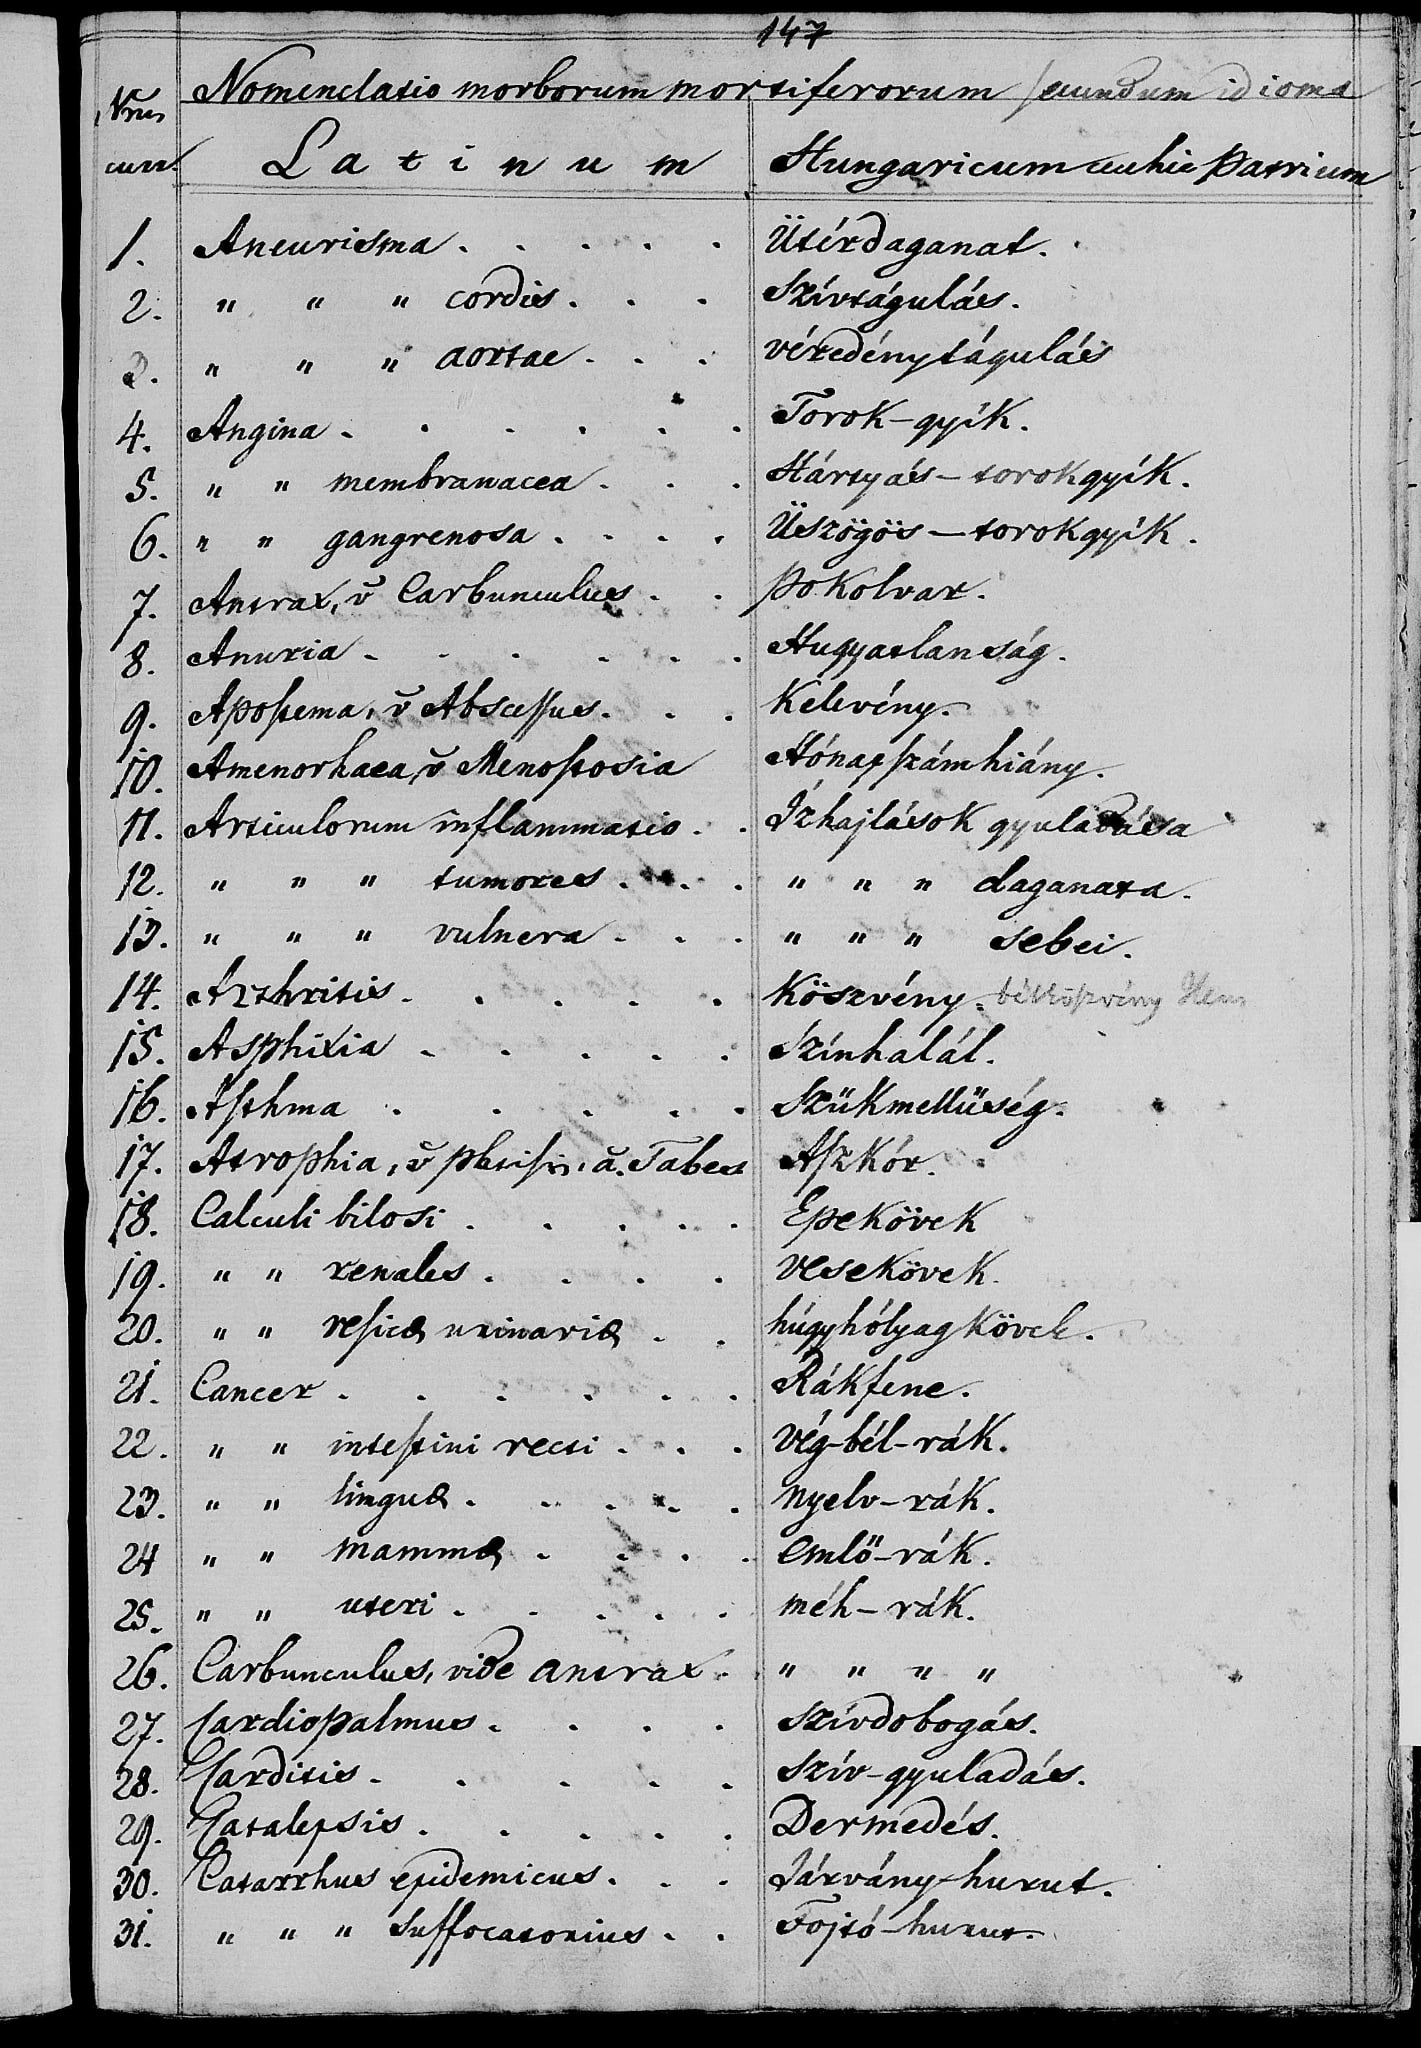 147
Nomenclatio morborum mortiferorum secundum idioma
Nrus curr. Latinum Hungaricum aut hic Patrium
1. Aneurisma . . . . . Ütérdaganat.
2. " " " cordis . . . Szívtágulás.
3. " " " aortae . . . véredénytágulás
4. Angina . . . . . . Torok-gyík.
5. " " membranacea . . . Hártyás-torokgyík.
6. " " gangrenosa . . . . Üszögös-torokgyík.
7. Antrax, v̆ Carbunculus . . Pokolvar.
8. Anuria . . . . . . Hugyatlanság.
9. Apostema, v̆ Abscessus . . . Kelevény.
10. Amenorhaea, v̆ Menostosia Hónapszámhiány.
11. Articulorum inflammatio . . Ízhajlások gyuladása
12. " " " tumores . . . . " " " daganata.
13. " " " vulnera . . . " " " sebei.
14. Arthritis . . . . . Köszvény.
15. Asphixia . . . . . Színhalál.
16. Asthma . . . . . Szükmellüség.
17. Atrophia, v̆ phtisis, v̆. Tabes Aszkór.
18. Calculi bilosi . . . . . Epekövek
19. " " renales . . . . vesekövek.
20. " " vesicæ urinariæ . . húgyhólyag kövek.
21. Cancer . . . . . . Rákfene.
22. " " intestini recti . . . vég-bél-rák.
23. " " linguæ . . . . . nyelv-rák.
24 " " mammæ . . . . emlő-rák.
25. " " uteri . . . . . méh-rák.
26. Carbunculus, vide antrax . " " " "
27. Cardiopalmus . . . . szívdobogás.
28. Carditis . . . . . szív-gyuladás.
29. Catalepsis . . . . . Dermedés.
30. Catarrhus epidemicus . . . Járvány-hurut.
31. " " " Suffocatorius . . Fojtó-hurut.